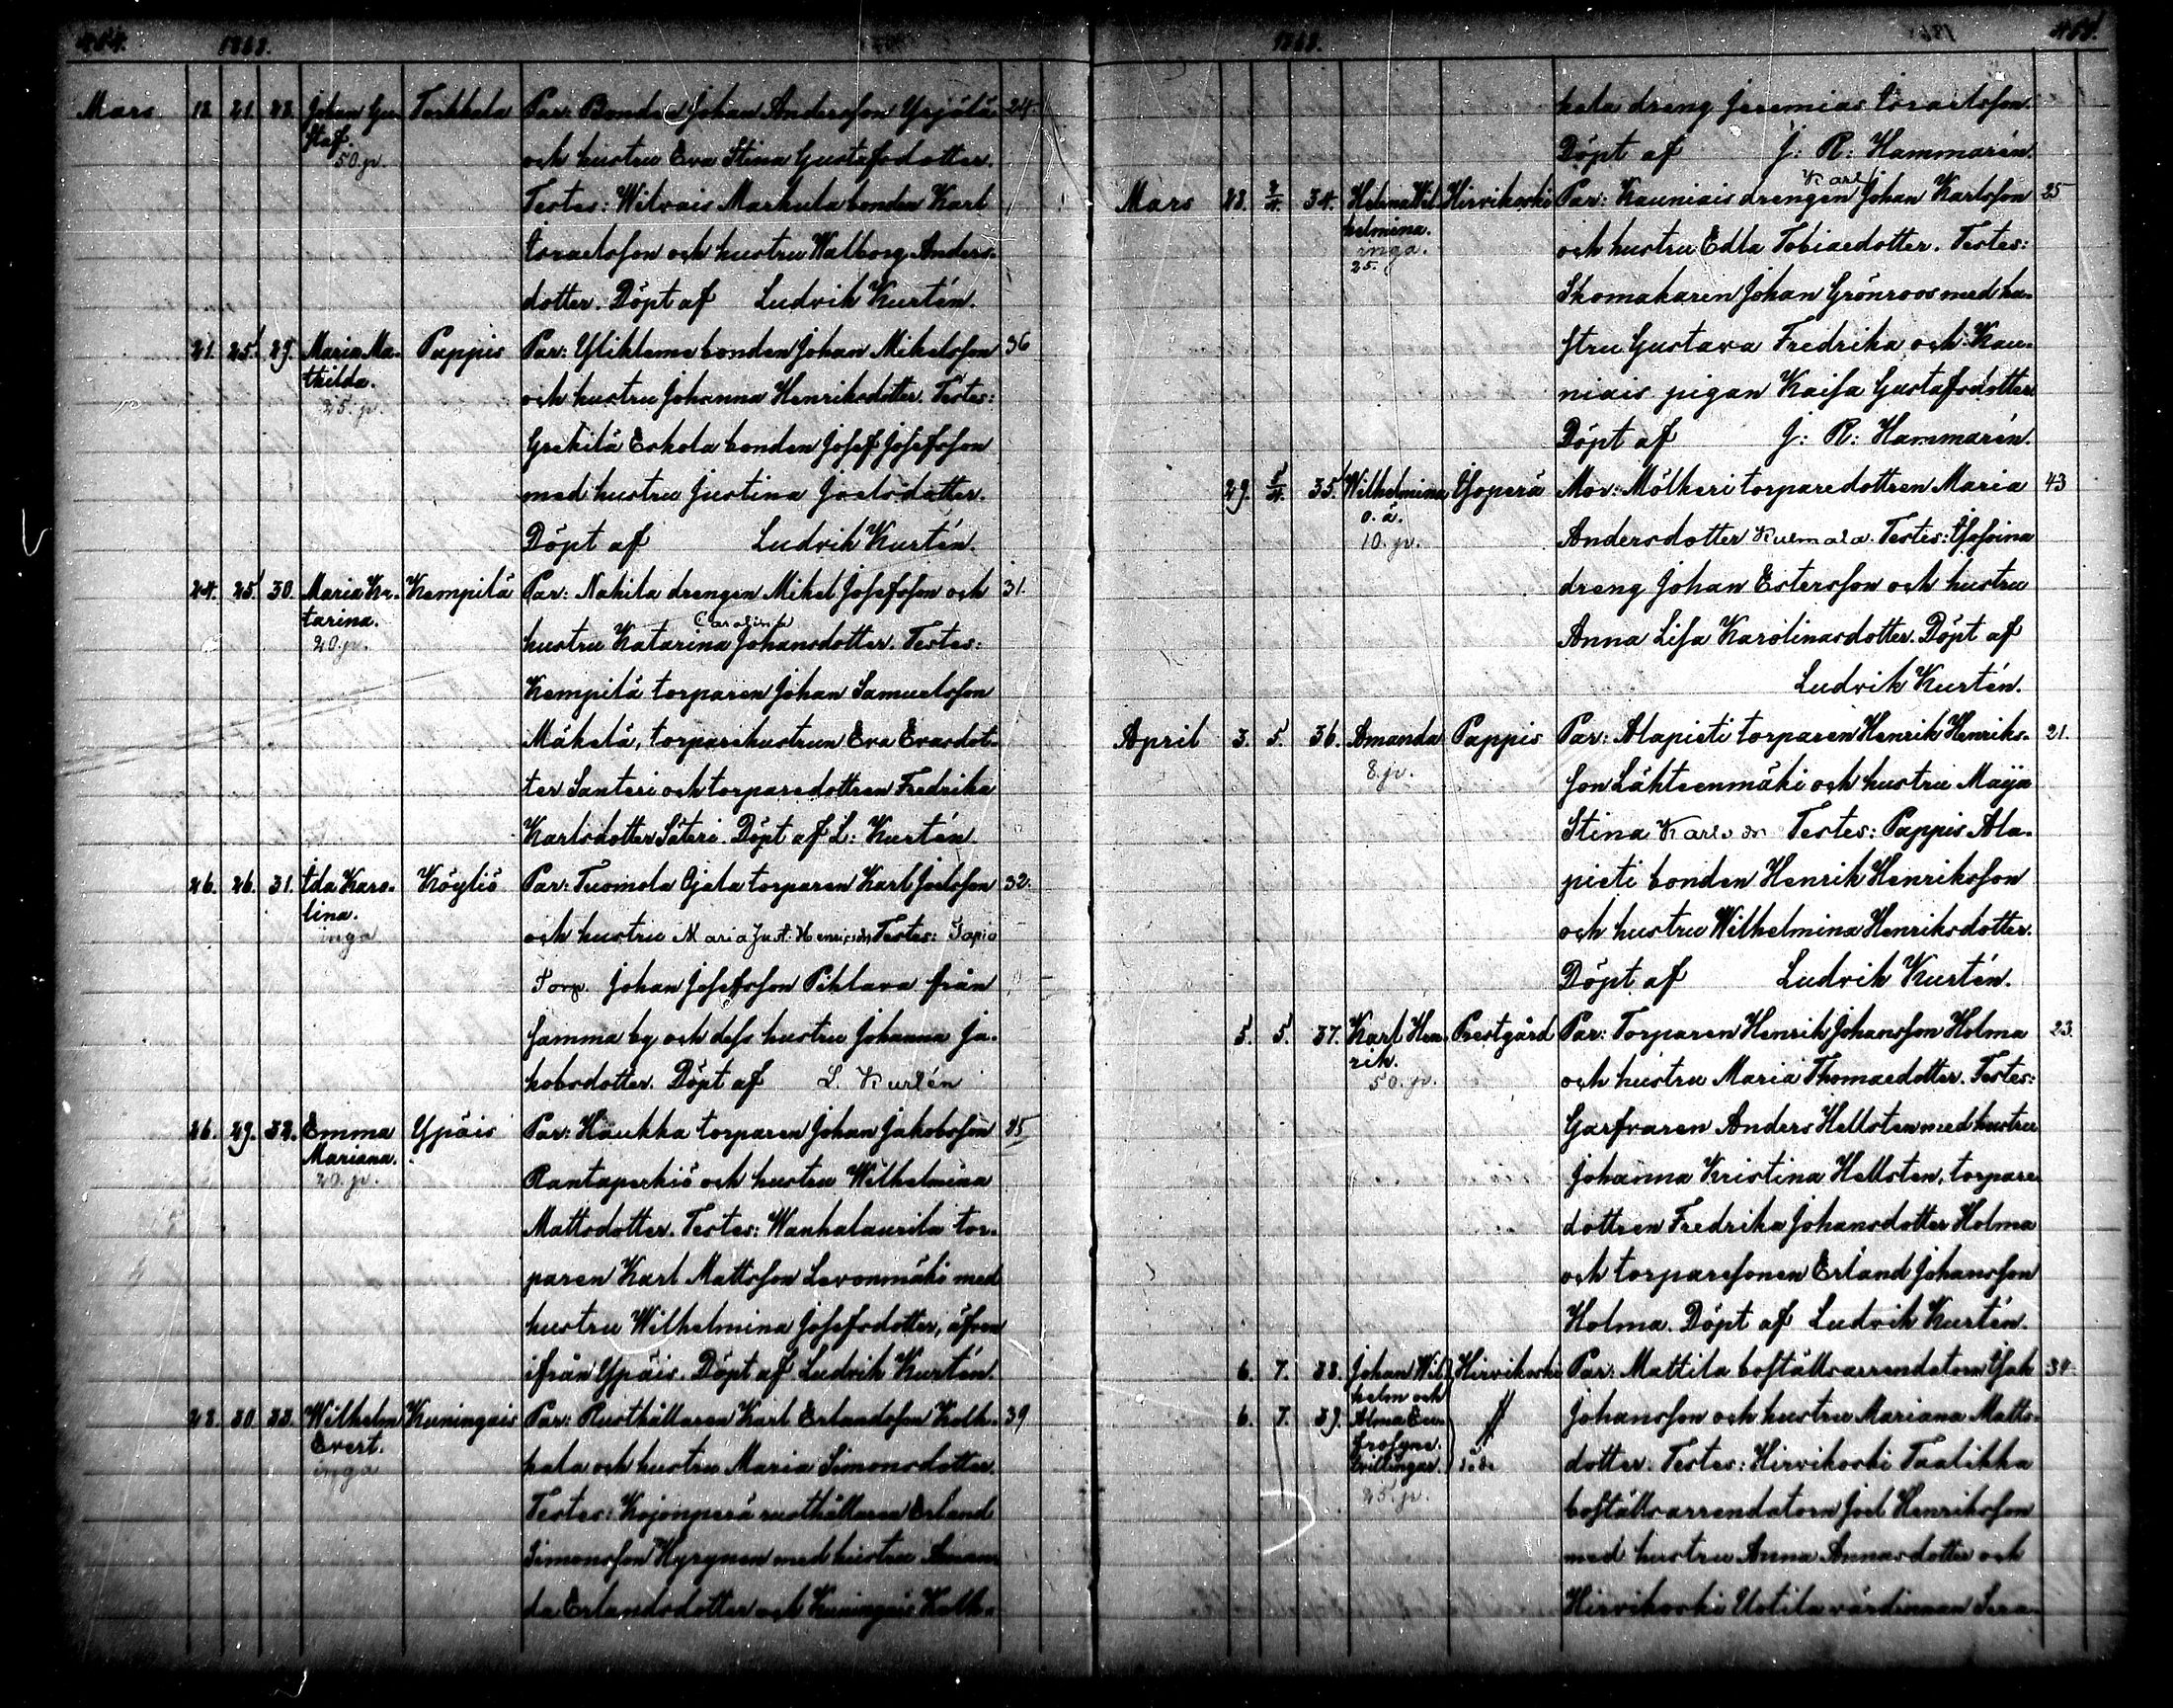 464. 1868.
Mars 18. 21. 28. Johan Gu- Torkkala Par: Bonden Johan Andersson Yrjölä 24
staf. 50. p. och hustru Eva Stina Gustafsdotter.
Testes: Wilvais Markula bonden Karl
Israelsson och hustru Walborg Anders-
dotter. Döpt af Ludvik Kurtén.
21. 25. 29. Maria Ma- Pappis Par: Ylikleme bonden Johan Mikelsson 36
thilda. 25. p. och hustru Johanna Henriksdotter. Testes:
Grekilä Eskola bonden Josef Josefsson
med hustru Justina Joelsdotter.
Döpt af Ludvik Kurtén.
24. 25. 30. Maria Ka- Kempilä Par: Nahila drengen Mikel Josefsson och 31.
tarina. 20. p. hustru Katarina Carolina Johansdotter. Testes:
Kempilä torparen Johan Samuelsson
Mäkelä, torparehustrun Eva Evasdot-
ter Santeri och torparedottren Fredrika
Karlsdotter Säteri. Döpt af L: Kurtén.
26. 26. 31. Ida Karo- Köyliö Par: Tuomola Ojala torparen Karl Joelsson 32.
lina. inga och hustru Maria Just. Henricsdr Testes: Tapio
Torp. Johan Josefsson Pihlava från
samma by och dess hustru Johanna Ja-
kobsdotter. Döpt af L. Kurtén
26. 29. 32. Emma Ypäis Par: Haukka torparen Johan Jakobsson 25
Mariana. 20. p. Rantaperkiö och hustru Wilhelmina
Mattsdotter. Testes: Wanhalaurila tor-
paren Karl Mattsson Levonmäki med
hustru Wilhelmina Josefsdotter, äfven
ifrån Ypäis. Döpt af Ludvik Kurtén.
28. 30. 33. Wilhelm Kuningais Par: Rusthållaren Karl Erlandsson Kolk- 39
Evert. inga kala och hustru Maria Simonsdotter.
Testes: Kojonperä rusthållaren Erland
Simonsson Hyrynen med hustru Aman-
da Erlandsdotter och Kuningais Kolk-
1868. 465.
kala dreng Jeremias Israelsson.
Döpt af J: R: Hammarén.
Mars 28. 2/4. 34. Helma Wil- Hirvikoski Par: Kauniais drengen Karl Johan Karlsson 25
helmina. inga. 25. och hustru Edla Tobiaedotter. Testes:
Skomakaren Johan Grönroos med hu-
stru Gustava Fredrika och Kau-
niais pigan Kaisa Gustafsdotter
Döpt af J: R: Hammarén.
29. 5/4. 35. Wilhelmina Isoperä Mor: Mölkeri torparedottren Maria 43
o. ä. 10. p. Andersdotter Kulmala. Testes: Isosoina
dreng Johan Estersson och hustru
Anna Lisa Karolinasdotter. Döpt af
Ludvik Kurtén.
April 3. 5. 36. Amanda Pappis Par: Alapieti torparen Henrik Henriks- 21.
8. p. son Lähteenmäki och hustru Maija
Stina Karlsdr Testes: Pappis Ala-
pieti bonden Henrik Henriksson
och hustru Wilhelmina Henriksdotter.
Döpt af Ludvik Kurtén.
5. 5. 37. Karl Hen- Prestgård Par: Torparen Henrik Johansson Holma 23.
rik. 50. p. och hustru Maria Thomaedotter. Testes:
Garfvaren Anders Hellsten med hustru
Johanna Kristina Hellsten, torpare
dottren Fredrika Johansdotter Holma
och torparesonen Erland Johansson
Holma. Döpt af Ludvik Kurtén.
6. 7. 38. Johan Wil- Hirvikoski Par: Mattila boställsarrendatorn Isak 34.
helm och
6. 7. 39. Alma Eu- Johansson och hustru Mariana Matts-
frosyne. Tvillingar. 25. p. dotter. Testes: Hirvikoski Taalikka
boställsarrendatorn Joel Henriksson
med hustru Anna Annasdotter och
Hirvikoski Uotila värdinnan Sera-